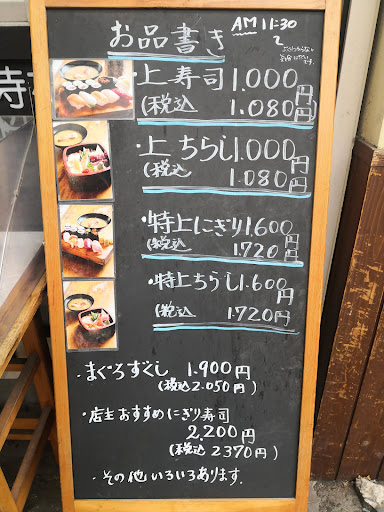 お品書き
AM 11:30
〜
・上寿司 1.000円
(税込 1.080円
・上ちらし 1.000円
(税込 1.080円
・特上にぎり 1.600円
(税込 1.720円
・特上ちらし 1.600円
(税込 1.720円
・まぐろずくし 1.900円
(税込 2.050円)
・店主おすすめにぎり寿司
2,200円
(税込 2370円)
・その他いろいろあります.